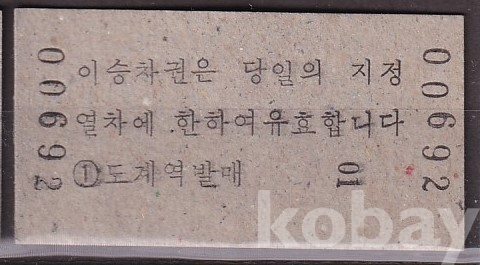 00692
이승차권은 당일의 지정
열차에 한하여유효합니다
①도계역발매 01
00692
kobay